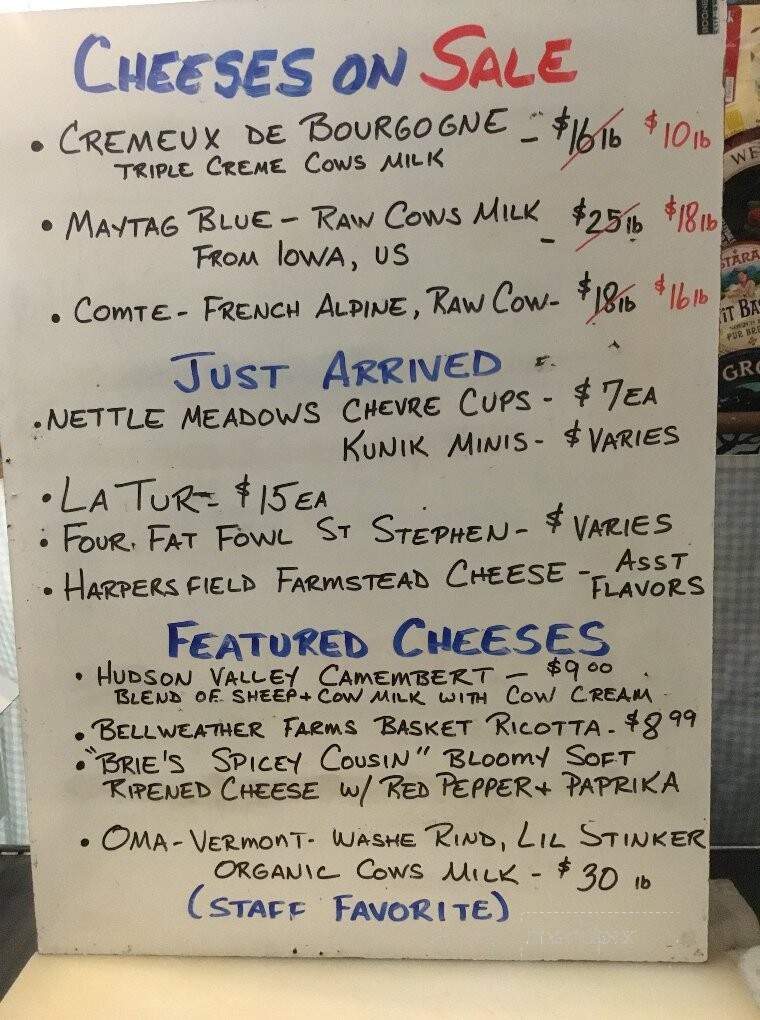 CHEESES ON SALE
• CREMEUX DE BOURGOGNE - $16 lb $10 lb
TRIPLE CREME COWS MILK
• MAYTAG BLUE - RAW COWS MILK - $25 lb $18 lb
FROM IOWA, US
• COMTE - FRENCH ALPINE, RAW COW - $18 lb $16 lb
JUST ARRIVED
• NETTLE MEADOWS CHEVRE CUPS - $7 EA
KUNIK MINIS - $ VARIES
• LA TUR - $15 EA
• FOUR FAT FOWL ST STEPHEN - $ VARIES
• HARPERSFIELD FARMSTEAD CHEESE - ASST
FLAVORS
FEATURED CHEESES
• HUDSON VALLEY CAMEMBERT - $9.00
BLEND OF SHEEP + COW MILK WITH COW CREAM
• BELLWEATHER FARMS BASKET RICOTTA - $8.99
• "BRIE'S SPICEY COUSIN" BLOOMY SOFT
RIPENED CHEESE W/ RED PEPPER + PAPRIKA
• OMA - VERMONT - WASHE RIND, LIL STINKER
ORGANIC COWS MILK - $30 lb
(STAFF FAVORITE)
WE
STARA
IT BA
GRO